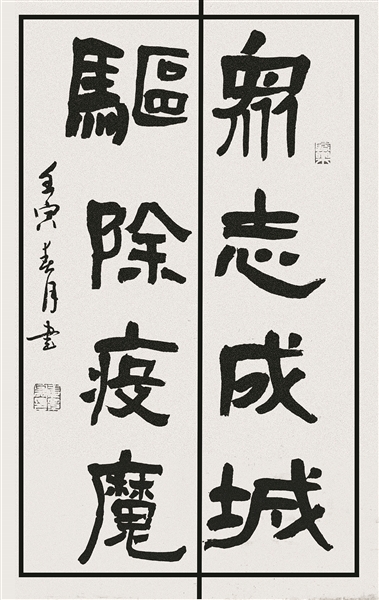 眾志成城
驅除疫魔
壬寅春月書